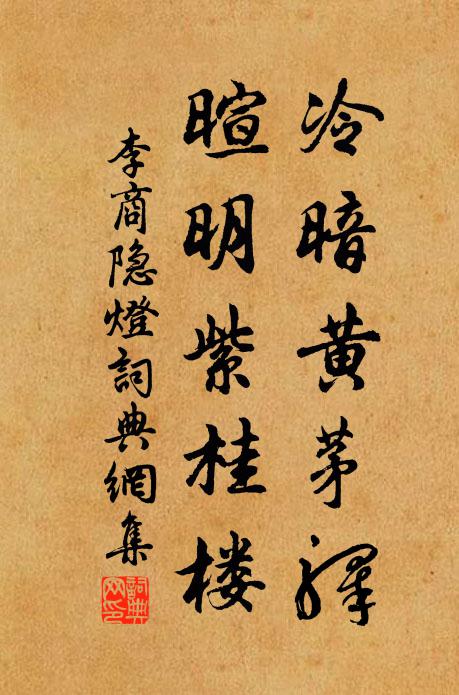 冷暗黄茅驿
暄明紫桂楼
李商隐燈詞典網集
詞典網印